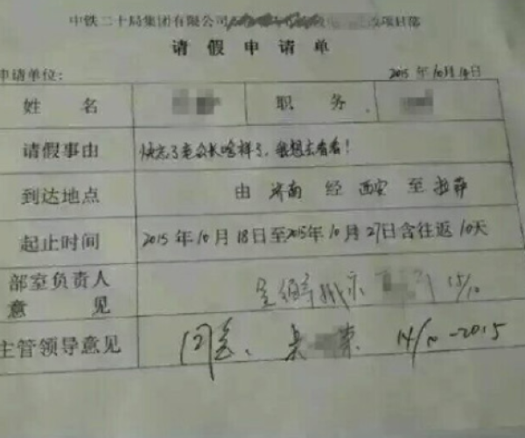 中铁二十局集团有限公司 项目部
请假申请单
申请单位: 2015年10月14日
姓名 职务
请假事由 快忘了老公长啥样了,我想去看看!
到达地点 由济南经西安至拉萨
起止时间 2015年10月18日至2015年10月27日含往返10天
部室负责人
意见 15/10
主管领导意见 同意、 14/10-2015